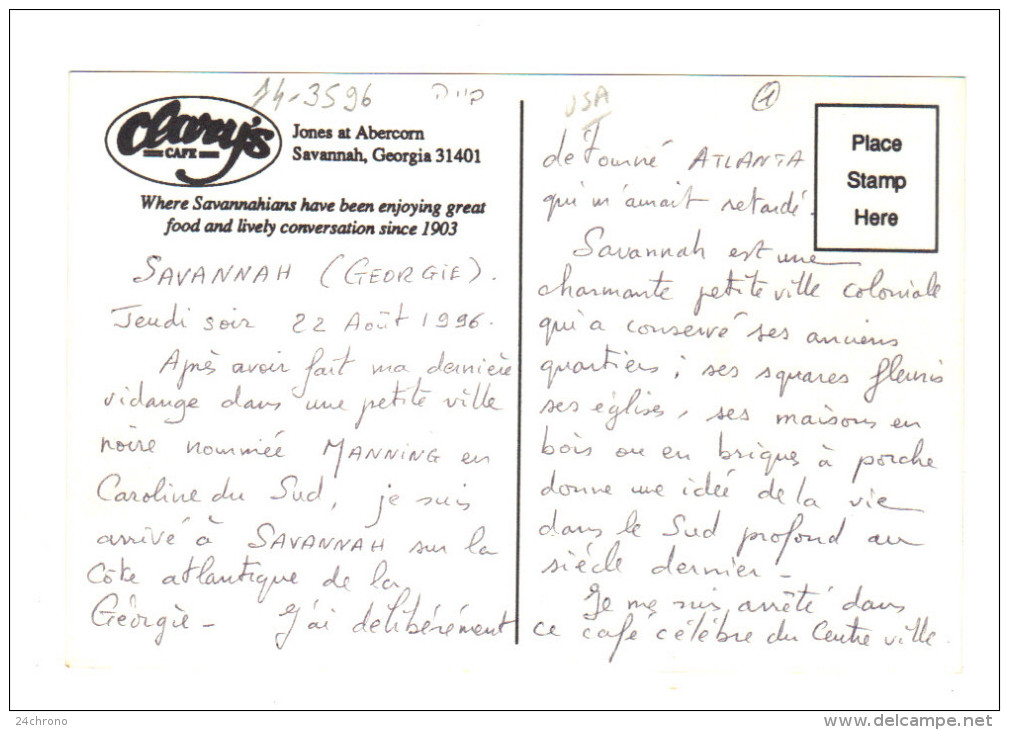 14-3596
USA
1
Clary's
CAFE
Jones at Abercorn
Savannah, Georgia 31401
Where Savannahians have been enjoying great
food and lively conversation since 1903
Place
Stamp
Here
SAVANNAH (GEORGIE).
Jeudi soir 22 Août 1996.
Après avoir fait ma dernière
vidange dans une petite ville
noire nommée MANNING en
Caroline du Sud, je suis
arrivé à SAVANNAH sur la
Côte atlantique de la
Géorgie - J'ai délibérément
détourné ATLANTA
qui m'aurait retardé.
Savannah est une
charmante petite ville coloniale
qui a conservé ses anciens
quartiers ; ses squares fleuris
ses églises, ses maisons en
bois ou en briques à porche
donne une idée de la vie
dans le Sud profond au
siècle dernier -
Je me suis arrêté dans
ce café célèbre du Centre ville.
24chrono
delcampe.net